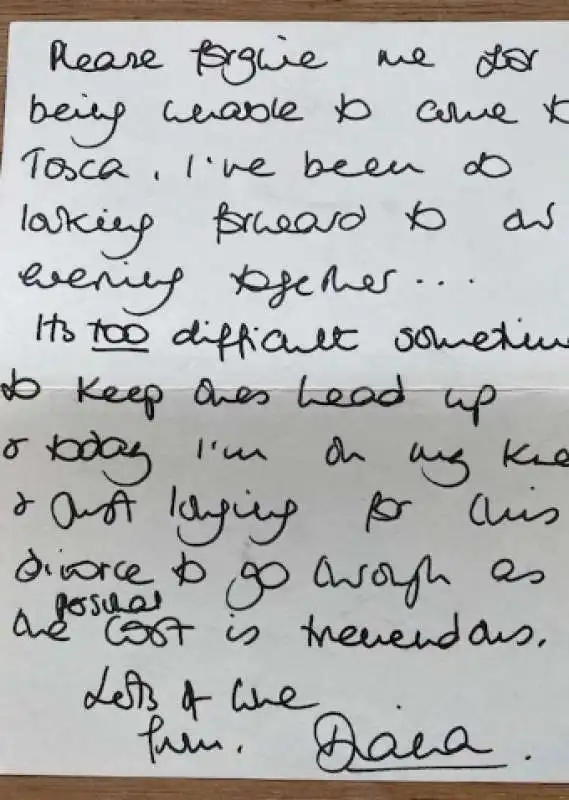 Please forgive me for
being unable to come to
Tosca. I've been so
looking forward to our
evening together...
Its too difficult sometim
to keep ones head up
& today I'm on my kne
& just longing for this
divorce to go through as
possible
the cost is tremendous.
Lots of love
from. Diana.